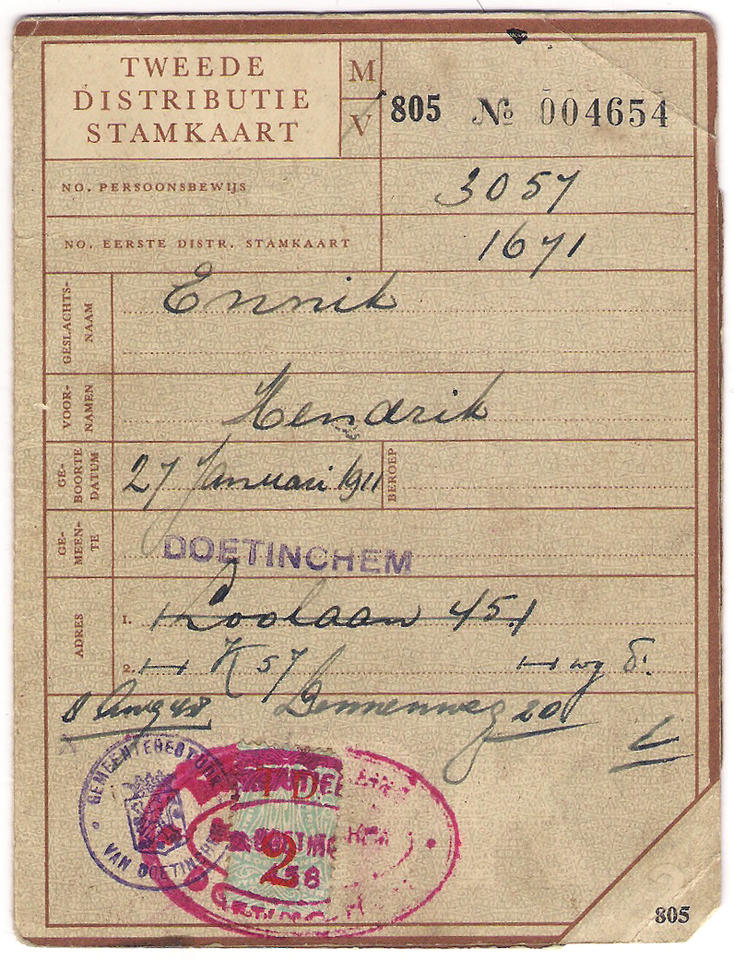 TWEEDE
DISTRIBUTIE
STAMKAART
M
V
805 № 004654
NO. PERSOONSBEWIJS 3057
NO. EERSTE DISTR. STAMKAART 1671
GESLACHTS-
NAAM
Ennik
VOOR-
NAMEN
Hendrik
GE-
BOORTE
DATUM
27 Januari 1911
BEROEP
GE-
MEEN-
TE
DOETINCHEM
ADRES
1. Loolaan 45.
2. K 57
Aug 48 Dennenweg 20
GEMEENTEBESTUUR
VAN DOETINCHEM
2
58
805